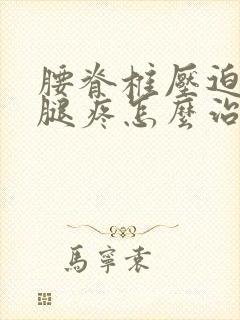 腰脊柱壓迫
腿疼怎麼治
馬寧素